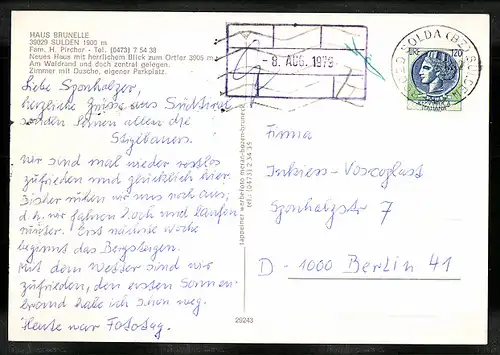 HAUS BRUNELLE
39029 SULDEN 1900 m
Fam. H. Pircher - Tel. (0473) 7 54 38
Neues Haus mit herrlichem Blick zum Ortler 3905 m
Am Waldrand und doch zentral gelegen.
Zimmer mit Dusche, eigener Parkplatz.
Liebe Sponholzer,
herzliche Grüsse aus Südtirol
senden Ihnen allen die
Wir sind mal wieder restlos
zufrieden und glücklich hier.
Bisher ruhen wir uns noch aus;
d.h. wir fahren hoch und laufen
runter. Erst nächste Woche
beginnt das Bergsteigen.
Mit dem Wetter sind wir
zufrieden, den ersten Sonnen-
brand habe ich schon weg.
Heute war Fototag.
tappeiner werbefoto meran
29243
- 8. AUG. 1979
SOLDA (BZ) SULDEN
120
Firma
Inkiess-Voscoplast
Sponholzstr 7
D-1000 Berlin 41